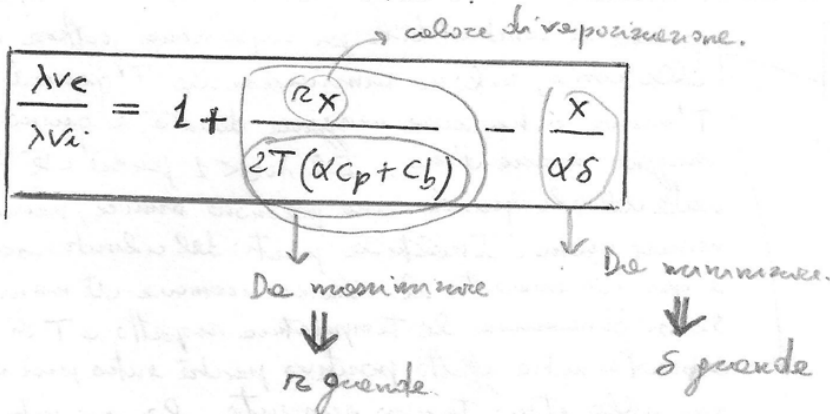 calore di vaporizzazione.
λve/λvi = 1 + rx/2T(αcp + cb) − x/αδ
Da massimizzare
Da minimizzare.
r grande
δ grande